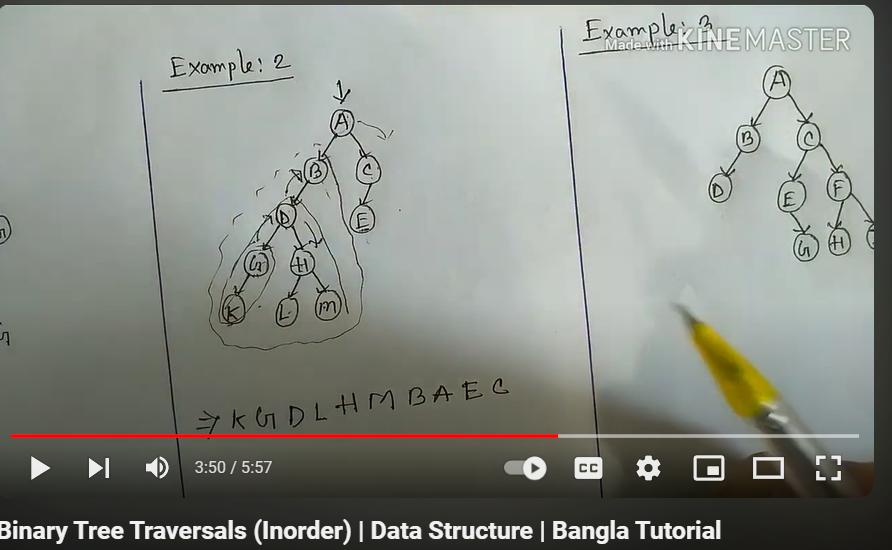 Example: 2
A
B
C
D
E
G
H
K
L
M
⇒ K G D L H M B A E C
Example: 3
Made with KINEMASTER
A
B
C
D
E
F
G
H
3:50 / 5:57
CC
Binary Tree Traversals (Inorder) | Data Structure | Bangla Tutorial